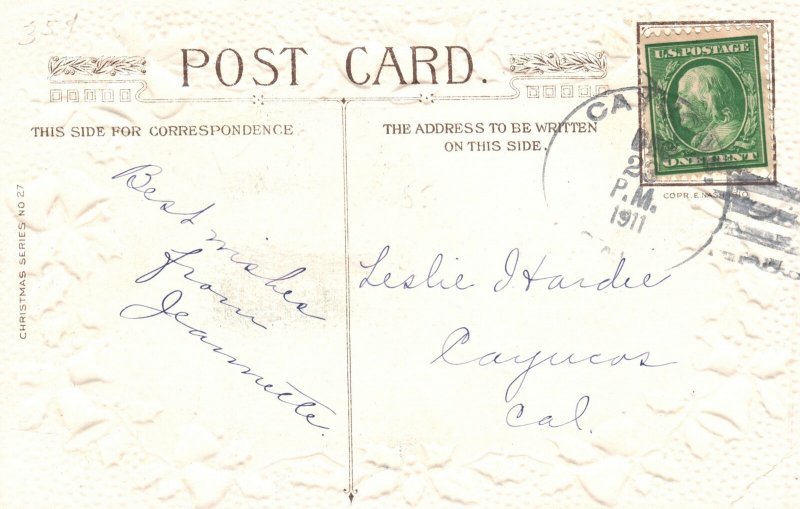 359
POST CARD.
THIS SIDE FOR CORRESPONDENCE
THE ADDRESS TO BE WRITTEN
ON THIS SIDE.
U.S. POSTAGE
ONE CENT
P.M.
1911
COPR. E. NASH
CHRISTMAS SERIES NO 27
Best wishes
from
Jeannette.
Leslie Hardie
Cayucos
Cal.